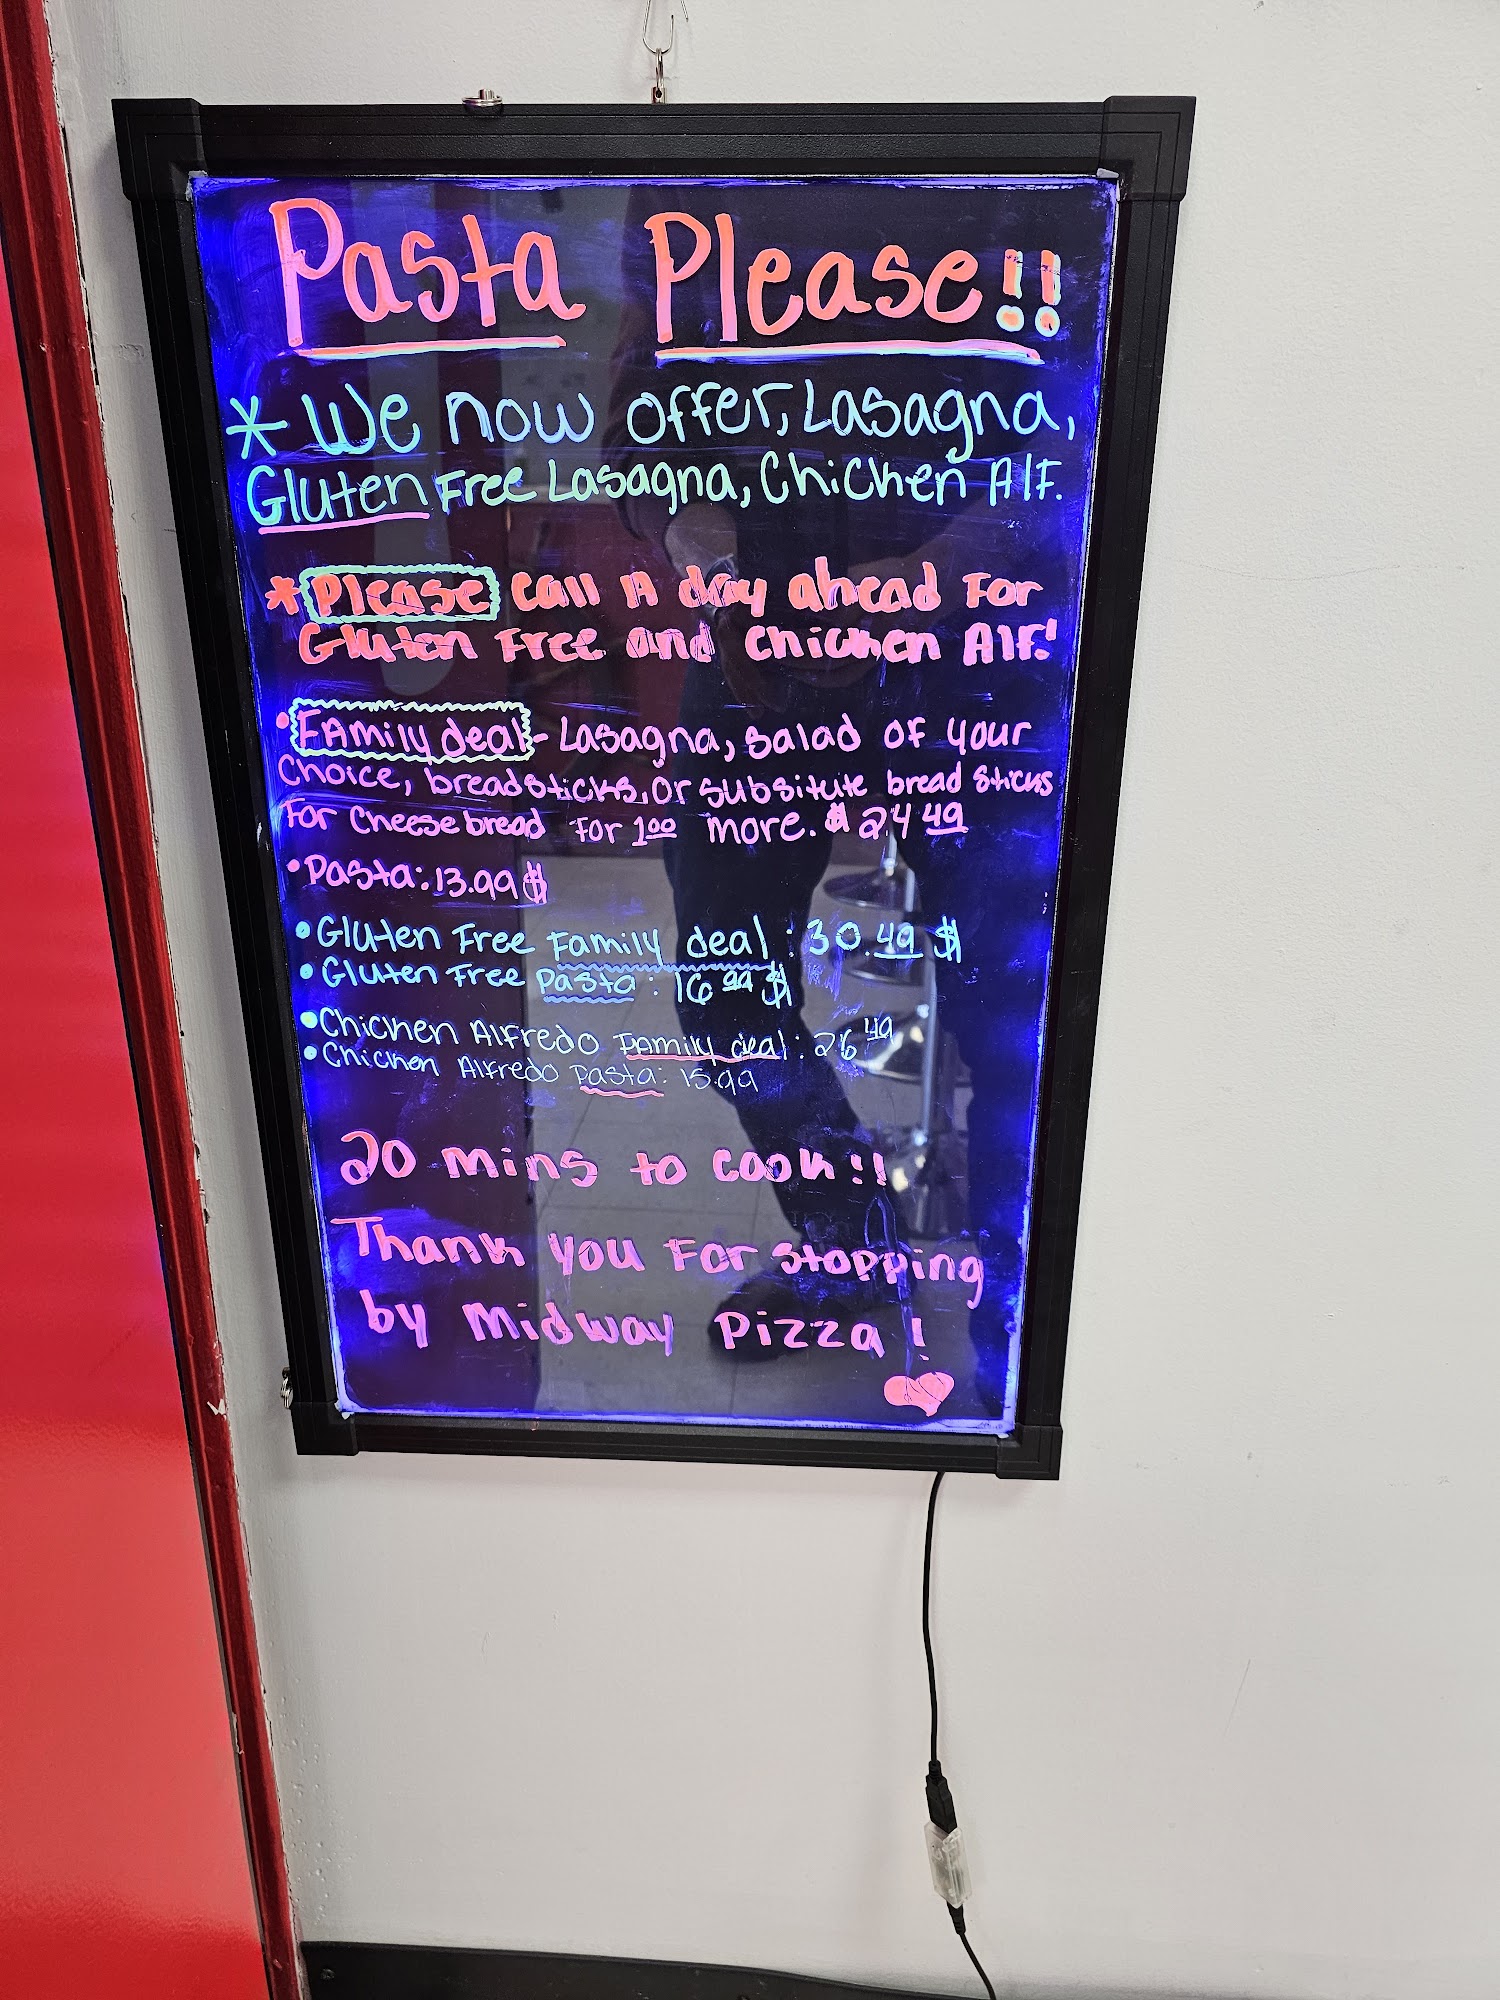 Pasta Please!!
* We now offer, Lasagna,
Gluten Free Lasagna, Chicken Alf.
* Please call A day ahead For
Gluten Free and Chicken Alf!
• Family deal - Lasagna, salad of your
Choice, breadsticks, or subsitute bread sticks
For Cheesebread for 1.00 more. $ 24 49
• Pasta: 13.99 $
• Gluten Free Family deal: 30.49 $
• Gluten Free Pasta: 16 99 $
• Chicken Alfredo Family deal: 26 49
• Chicken Alfredo Pasta: 15.99
20 mins to cook!!
Thank you For stopping
by Midway Pizza!